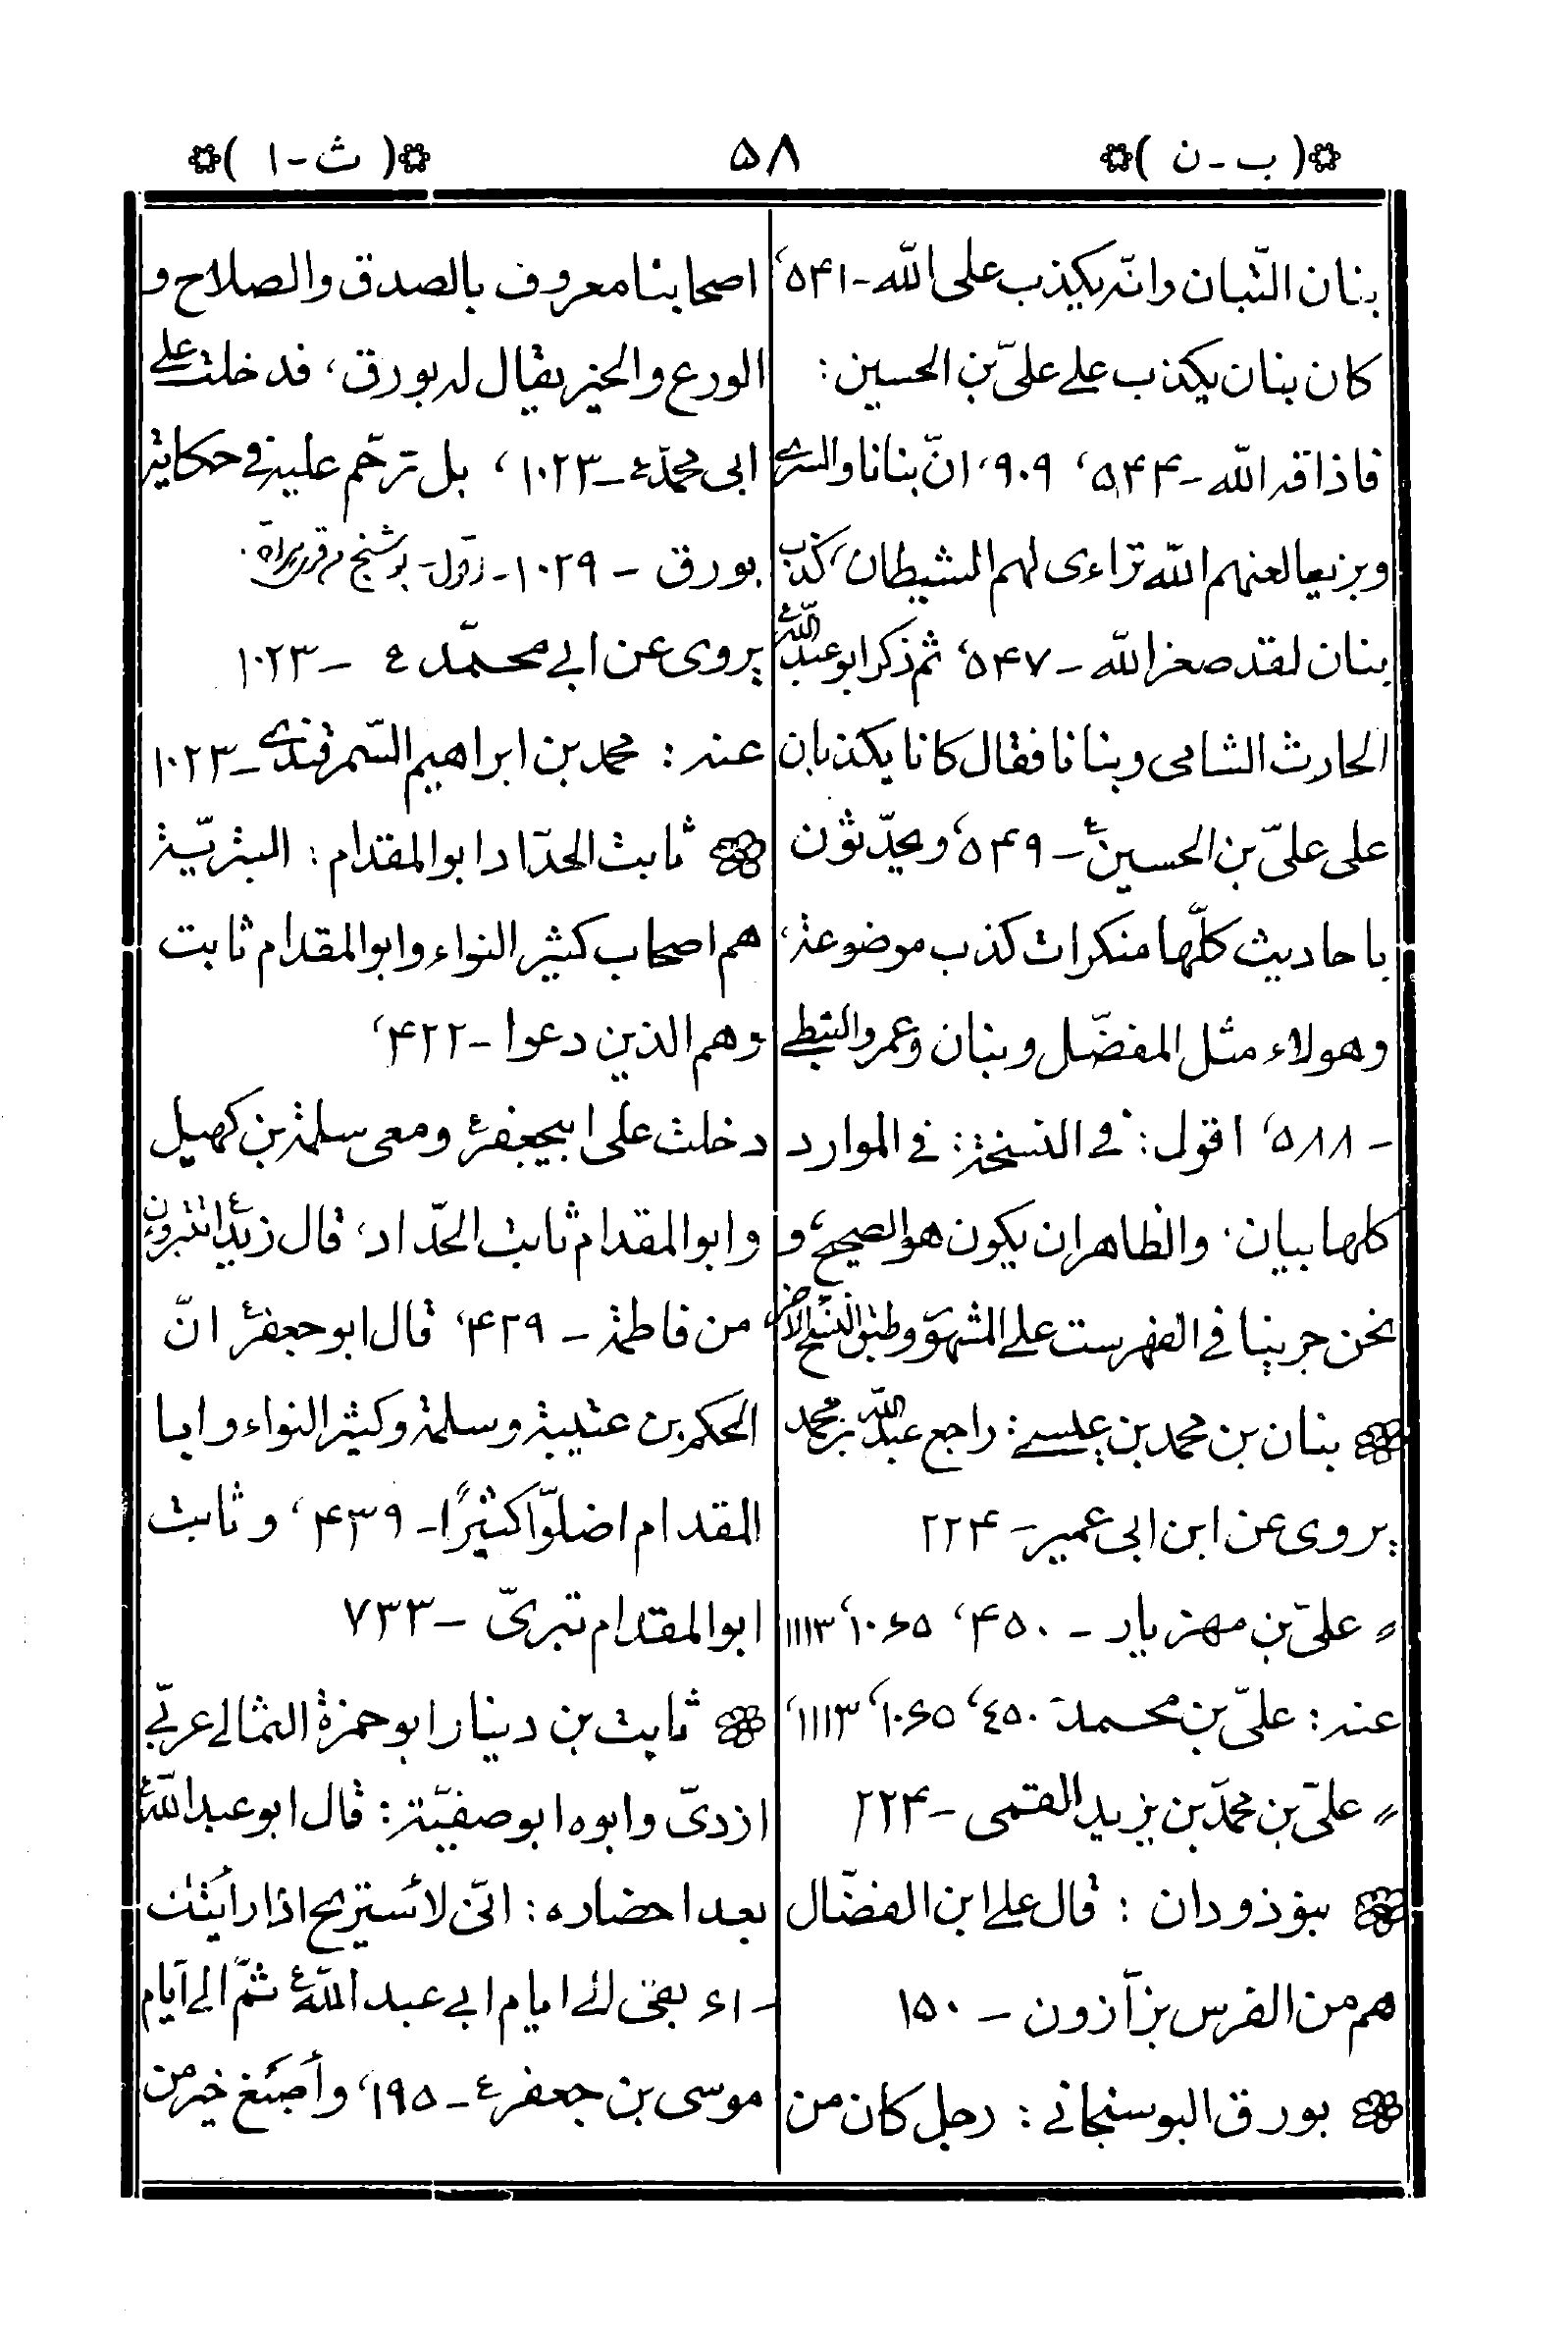 (ب - ن) ۵۸ (ث - ا)
بنان التّبان وانّه يكذب على الله - ۵۴۱،
كان بنان يكذب على علىّ بن الحسين:
فاذاقه الله - ۵۴۴، ۹۰۹، انّ بنانا والسرى
وبزيعا لعنهم الله تراءى لهم الشيطان، كذب
بنان لقد صغر الله - ۵۴۷، ثم ذكر ابو عبد اللهؑ
الحارث الشامى وبنانا فقال كانا يكذبان
على علىّ بن الحسينؑ - ۵۴۹، ويحدّثون
باحاديث كلّها منكرات كذب موضوعة،
وهولاء مثل المفضّل وبنان وعمرو النبطى
- ۵۸۸، اقول: فى النسخة: فى الموارد
كلها بيان. والظاهر ان يكون هو الصحيح، و
نحن جرينا فى الفهرست على المشهور وطبق النسخ الاخر
بنان بن محمد بن عيسى: راجع عبد الله بن محمد
يروى عن ابن ابى عمير - ۲۲۴
〃 علىّ بن مهزيار - ۴۵۰، ۱۰۶۵، ۱۱۱۳
عنه: علىّ بن محمد - ٤۵۰، ۱۰۶۵، ۱۱۱۳،
〃 علىّ بن محمّد بن يزيد القمى - ۲۲۴
بنو ذودان: قال على ابن الفضّال
هم من الفرس بزآزون - ۱۵۰
بورق البوسنجانى: رجل كان من
اصحابنا معروف بالصدق والصلاح و
الورع والخير يقال له بورق، فدخلت على
ابى محمّدؑ - ۱۰۲۳، بل ترحّم عليه فى حكاية
بورق - ۱۰۲۹ - بوشنج
يروى عن ابى محمّد ع - ۱۰۲۳
عنه: محمد بن ابراهيم السّمرقندى - ۱۰۲۳
ثابت الحدّاد ابو المقدام: البتريّة
هم اصحاب كثير النواء وابو المقدام ثابت
وهم الذين دعوا - ۴۲۲،
دخلت على ابيجعفرؑ ومعى سلمة بن كهيل
وابو المقدام ثابت الحدّاد، قال زيدؑ اتتبرون
من فاطمة - ۴۲۹، قال ابو جعفرؑ انّ
الحكم بن عتيبة وسلمة وكثير النواء وابا
المقدام اضلوّا كثيرًا - ۴۳۹، وثابت
ابو المقدام تبرىّ - ۷۳۳
ثابت بن دينار ابو حمزة الثمالى عربّى
ازدىّ وابوه ابو صفيّة: قال ابو عبد اللهؑ
بعد احضاره: انّى لاستريح اذا رأيتك
- ۶۱، بقى الى ايام ابى عبد اللهؑ ثمّ الى ايّام
موسى بن جعفرؑ - ۱۹۵، وأصبَغ خير من